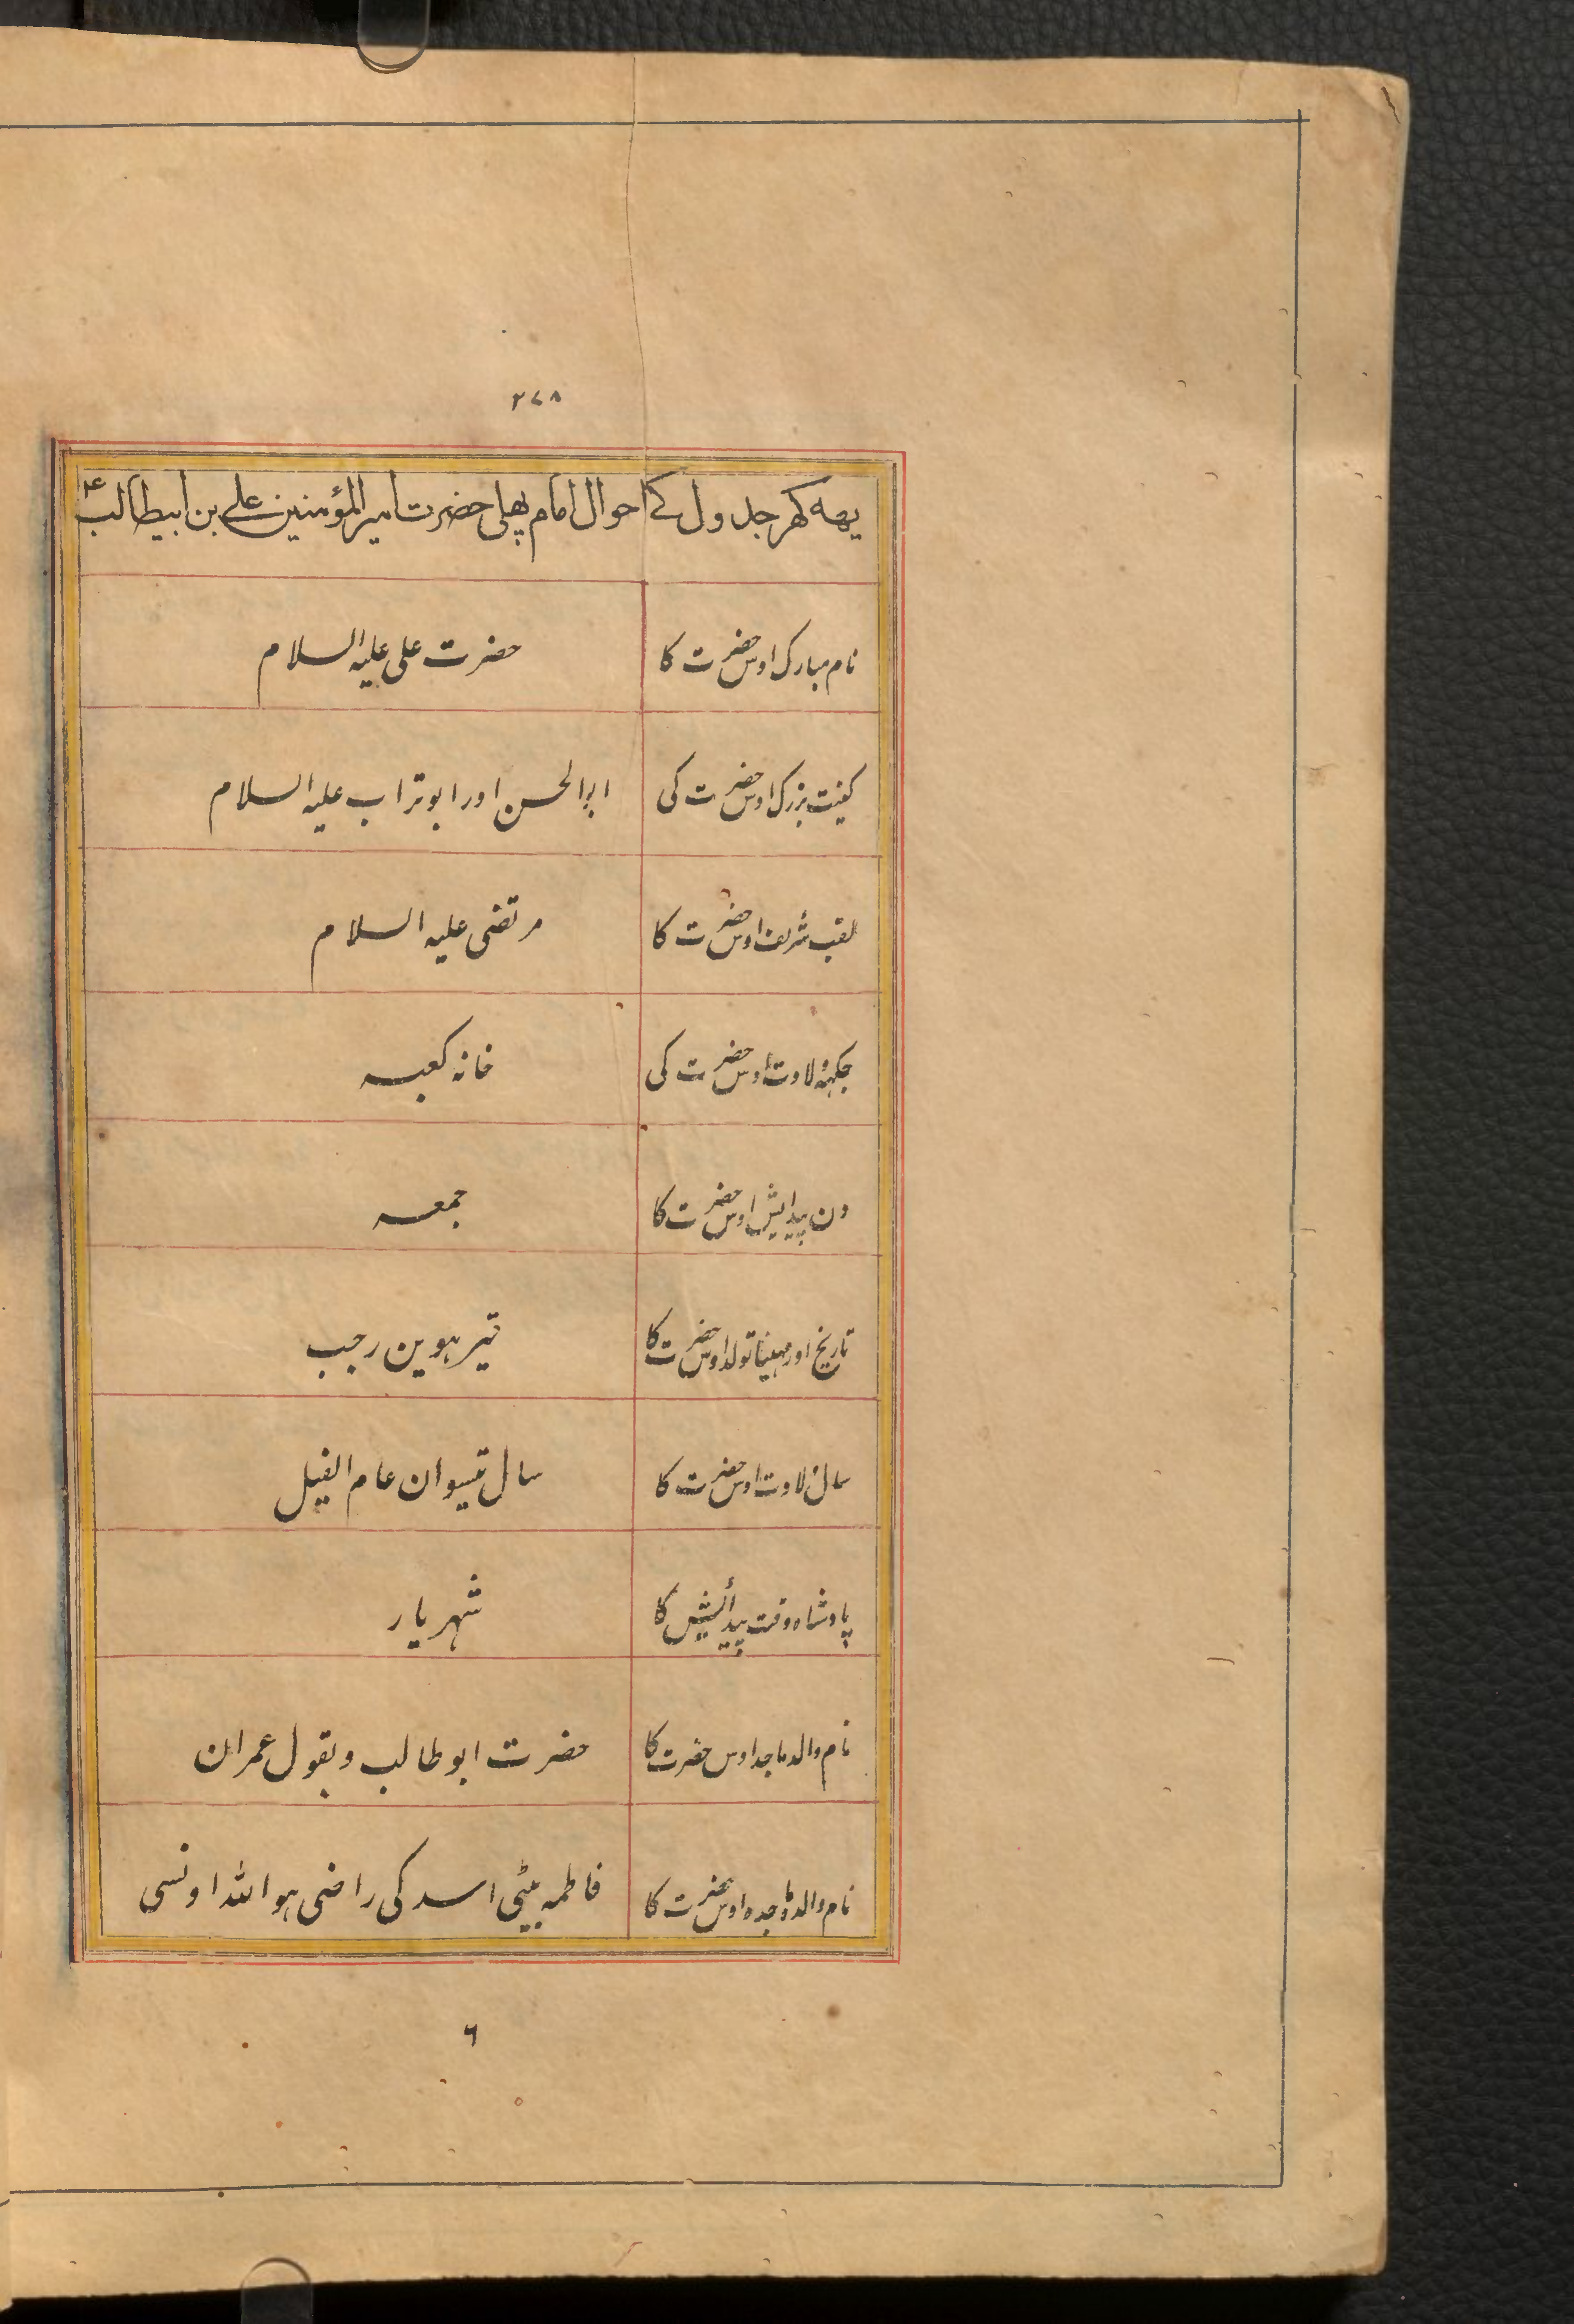 ۲۷۸
یهه کهر جدول کے احوال امام پهلی حضرت امیر المؤمنین علے بن ابیطالب ع
نام مبارک اوس حضرت کا حضرت علی علیہ السلام
کنیت بزرک اوس حضرت کی ابوالحسن اور ابوتراب علیہ السلام
لقب شریف اوس حضرت کا مرتضی علیہ السلام
جکہہ ولادت اوس حضرت کی خانہ کعبہ
دن پیدایش اوس حضرت کا جمعہ
تاریخ اور مہینا تولد اوس حضرت کا تیرہوین رجب
سال ولادت اوس حضرت کا سال تیسوان عام الفیل
پادشاہ وقت پیدأیش کا شہریار
نام والد ماجد اوس حضرت کا حضرت ابو طالب و بقول عمران
نام والدہ ماجدہ اوس حضرت کا فاطمہ بیٹی اسد کی راضی ہو اللہ اونسی
۶